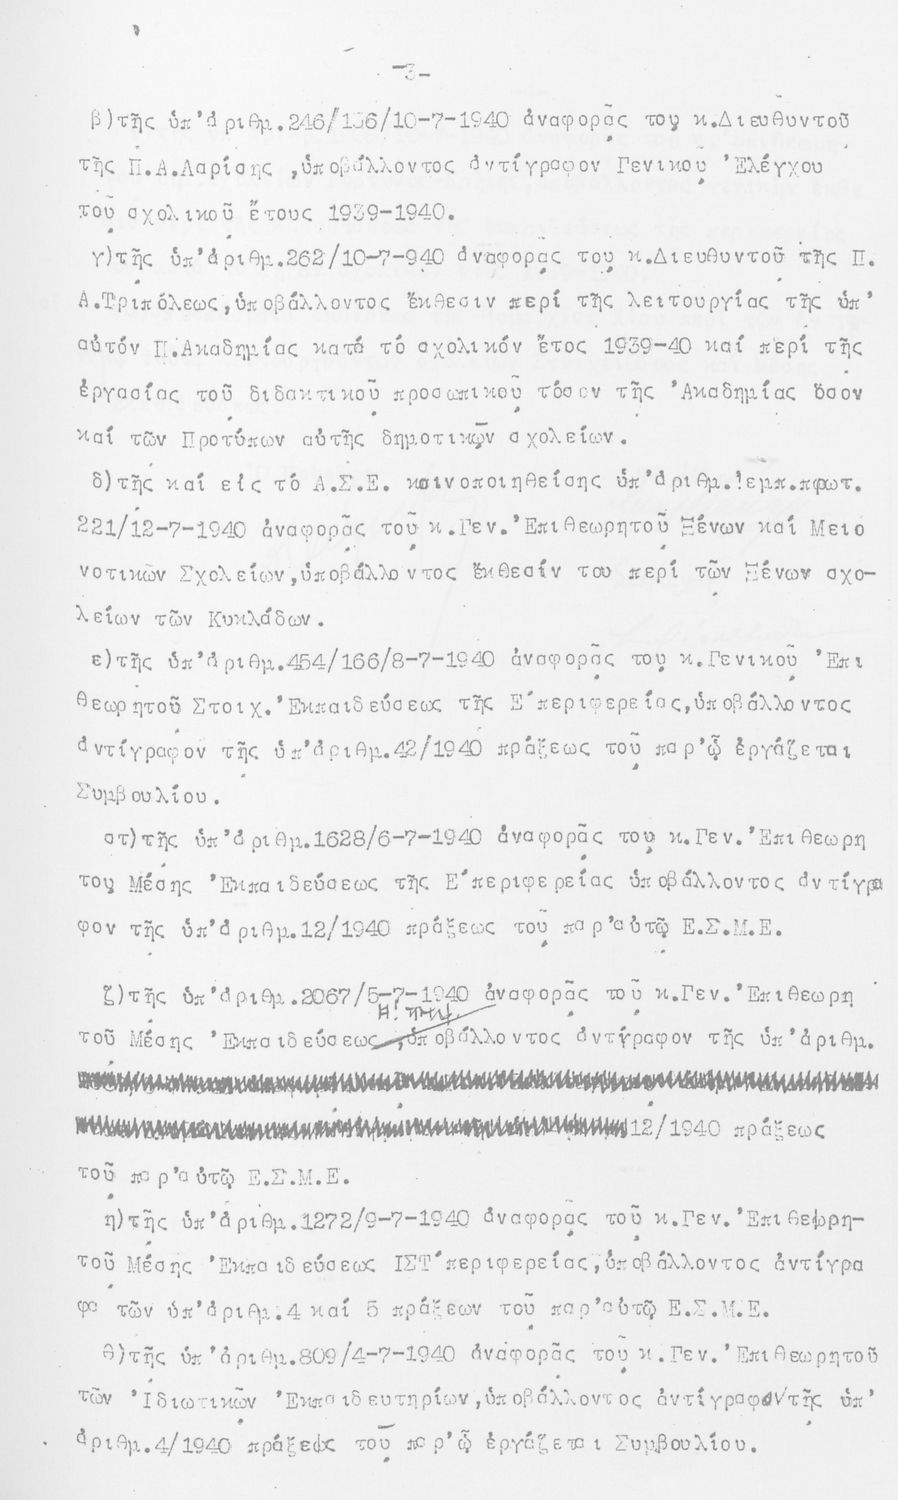 -3-
β)τῆς ὑπ'ἀριθμ.246/136/10-7-1940 ἀναφορᾶς τοῦ κ.Διευθυντοῦ
τῆς Π.Α.Λαρίσης ,ὑποβάλλοντος ἀντίγραφον Γενικοῦ Ἐλέγχου
τοῦ σχολικοῦ ἔτους 1939-1940.
γ)τῆς ὑπ'ἀριθμ.262/10-7-940 ἀναφορᾶς τοῦ κ.Διευθυντοῦ τῆς Π.
Α.Τριπόλεως,ὑποβάλλοντος ἔκθεσιν περί τῆς λειτουργίας τῆς ὑπ'
αὐτόν Π.Ἀκαδημίας κατά τό σχολικόν ἔτος 1939-40 καί περί τῆς
ἐργασίας τοῦ διδακτικοῦ προσωπικοῦ τόσον τῆς Ἀκαδημίας ὅσον
καί τῶν Προτύπων αὐτῆς δημοτικῶν σχολείων.
δ)τῆς καί εἰς τό Α.Σ.Ε. κοινοποιηθείσης ὑπ'ἀριθμ.ἐμπ.πρωτ.
221/12-7-1940 ἀναφορᾶς τοῦ κ.Γεν.Ἐπιθεωρητοῦ Ξένων καί Μειο
νοτικῶν Σχολείων,ὑποβάλλοντος ἔκθεσίν του περί τῶν Ξένων σχο-
λείων τῶν Κυκλάδων.
ε)τῆς ὑπ'ἀριθμ.454/166/8-7-1940 ἀναφορᾶς τοῦ κ.Γενικοῦ Ἐπι
θεωρητοῦ Στοιχ.Ἐκπαιδεύσεως τῆς Ε΄περιφερείας,ὑποβάλλοντος
ἀντίγραφον τῆς ὑπ'ἀριθμ.42/1940 πράξεως τοῦ παρ'ᾧ ἐργάζεται
Συμβουλίου.
στ)τῆς ὑπ'ἀριθμ.1628/6-7-1940 ἀναφορᾶς τοῦ κ.Γεν.Ἐπιθεωρη
τοῦ Μέσης Ἐκπαιδεύσεως τῆς Ε΄περιφερείας ὑποβάλλοντος ἀντίγρα
φον τῆς ὑπ'ἀριθμ.12/1940 πράξεως τοῦ παρ'αὐτῷ Ε.Σ.Μ.Ε.
ζ)τῆς ὑπ'ἀριθμ.2067/5-7-1940 ἀναφορᾶς τοῦ κ.Γεν.Ἐπιθεωρη
τοῦ Μέσης Ἐκπαιδεύσεως ,ὑποβάλλοντος ἀντίγραφον τῆς ὑπ'ἀριθμ.
12/1940 πράξεως
τοῦ παρ'αὐτῷ Ε.Σ.Μ.Ε.
η)τῆς ὑπ'ἀριθμ.1272/9-7-1940 ἀναφορᾶς τοῦ κ.Γεν.Ἐπιθεωρη-
τοῦ Μέσης Ἐκπαιδεύσεως ΙΣΤ΄περιφερείας,ὑποβάλλοντος ἀντίγρα
φα τῶν ὑπ'ἀριθμ.4 καί 5 πράξεων τοῦ παρ'αὐτῷ Ε.Σ.Μ.Ε.
θ)τῆς ὑπ'ἀριθμ.809/4-7-1940 ἀναφορᾶς τοῦ κ.Γεν.Ἐπιθεωρητοῦ
τῶν Ἰδιωτικῶν Ἐκπαιδευτηρίων,ὑποβάλλοντος ἀντίγραφον τῆς ὑπ'
ἀριθμ.4/1940 πράξεως τοῦ παρ'ᾧ ἐργάζεται Συμβουλίου.